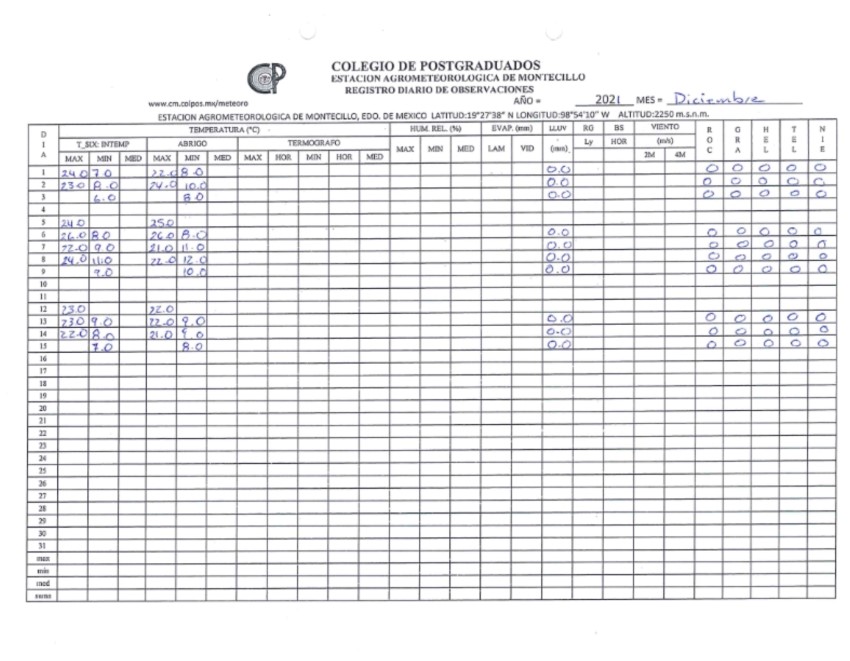 COLEGIO DE POSTGRADUADOS
ESTACION AGROMETEOROLOGICA DE MONTECILLO
REGISTRO DIARIO DE OBSERVACIONES
www.cm.colpos.mx/meteoro AÑO = 2021 MES = Diciembre
ESTACION AGROMETEOROLOGICA DE MONTECILLO, EDO. DE MEXICO LATITUD:19°27'38" N LONGITUD:98°54'10" W ALTITUD:2250 m.s.n.m.
DIA TEMPERATURA (°C) HUM. REL. (%) EVAP. (mm) LLUV (mm) RG Ly BS HOR VIENTO (m/s) ROC GRA HEL TEL NIE
T_SIX: INTEMP ABRIGO TERMOGRAFO
MAX MIN MED MAX MIN MED MAX HOR MIN HOR MED MAX MIN MED LAM VID 2M 4M
1 24.0 7.0 22.0 8.0 0.0 0 0 0 0 0
2 23.0 8.0 24.0 10.0 0.0 0 0 0 0 0
3 6.0 8.0 0.0 0 0 0 0 0
4
5 24.0 25.0
6 26.0 8.0 26.0 8.0 0.0 0 0 0 0 0
7 22.0 9.0 21.0 11.0 0.0 0 0 0 0 0
8 24.0 11.0 22.0 12.0 0.0 0 0 0 0 0
9 9.0 10.0 0.0 0 0 0 0 0
10
11
12 23.0 22.0
13 23.0 9.0 22.0 9.0 0.0 0 0 0 0 0
14 22.0 8.0 21.0 9.0 0.0 0 0 0 0 0
15 7.0 8.0 0.0 0 0 0 0 0
16
17
18
19
20
21
22
23
24
25
26
27
28
29
30
31
max
min
med
suma